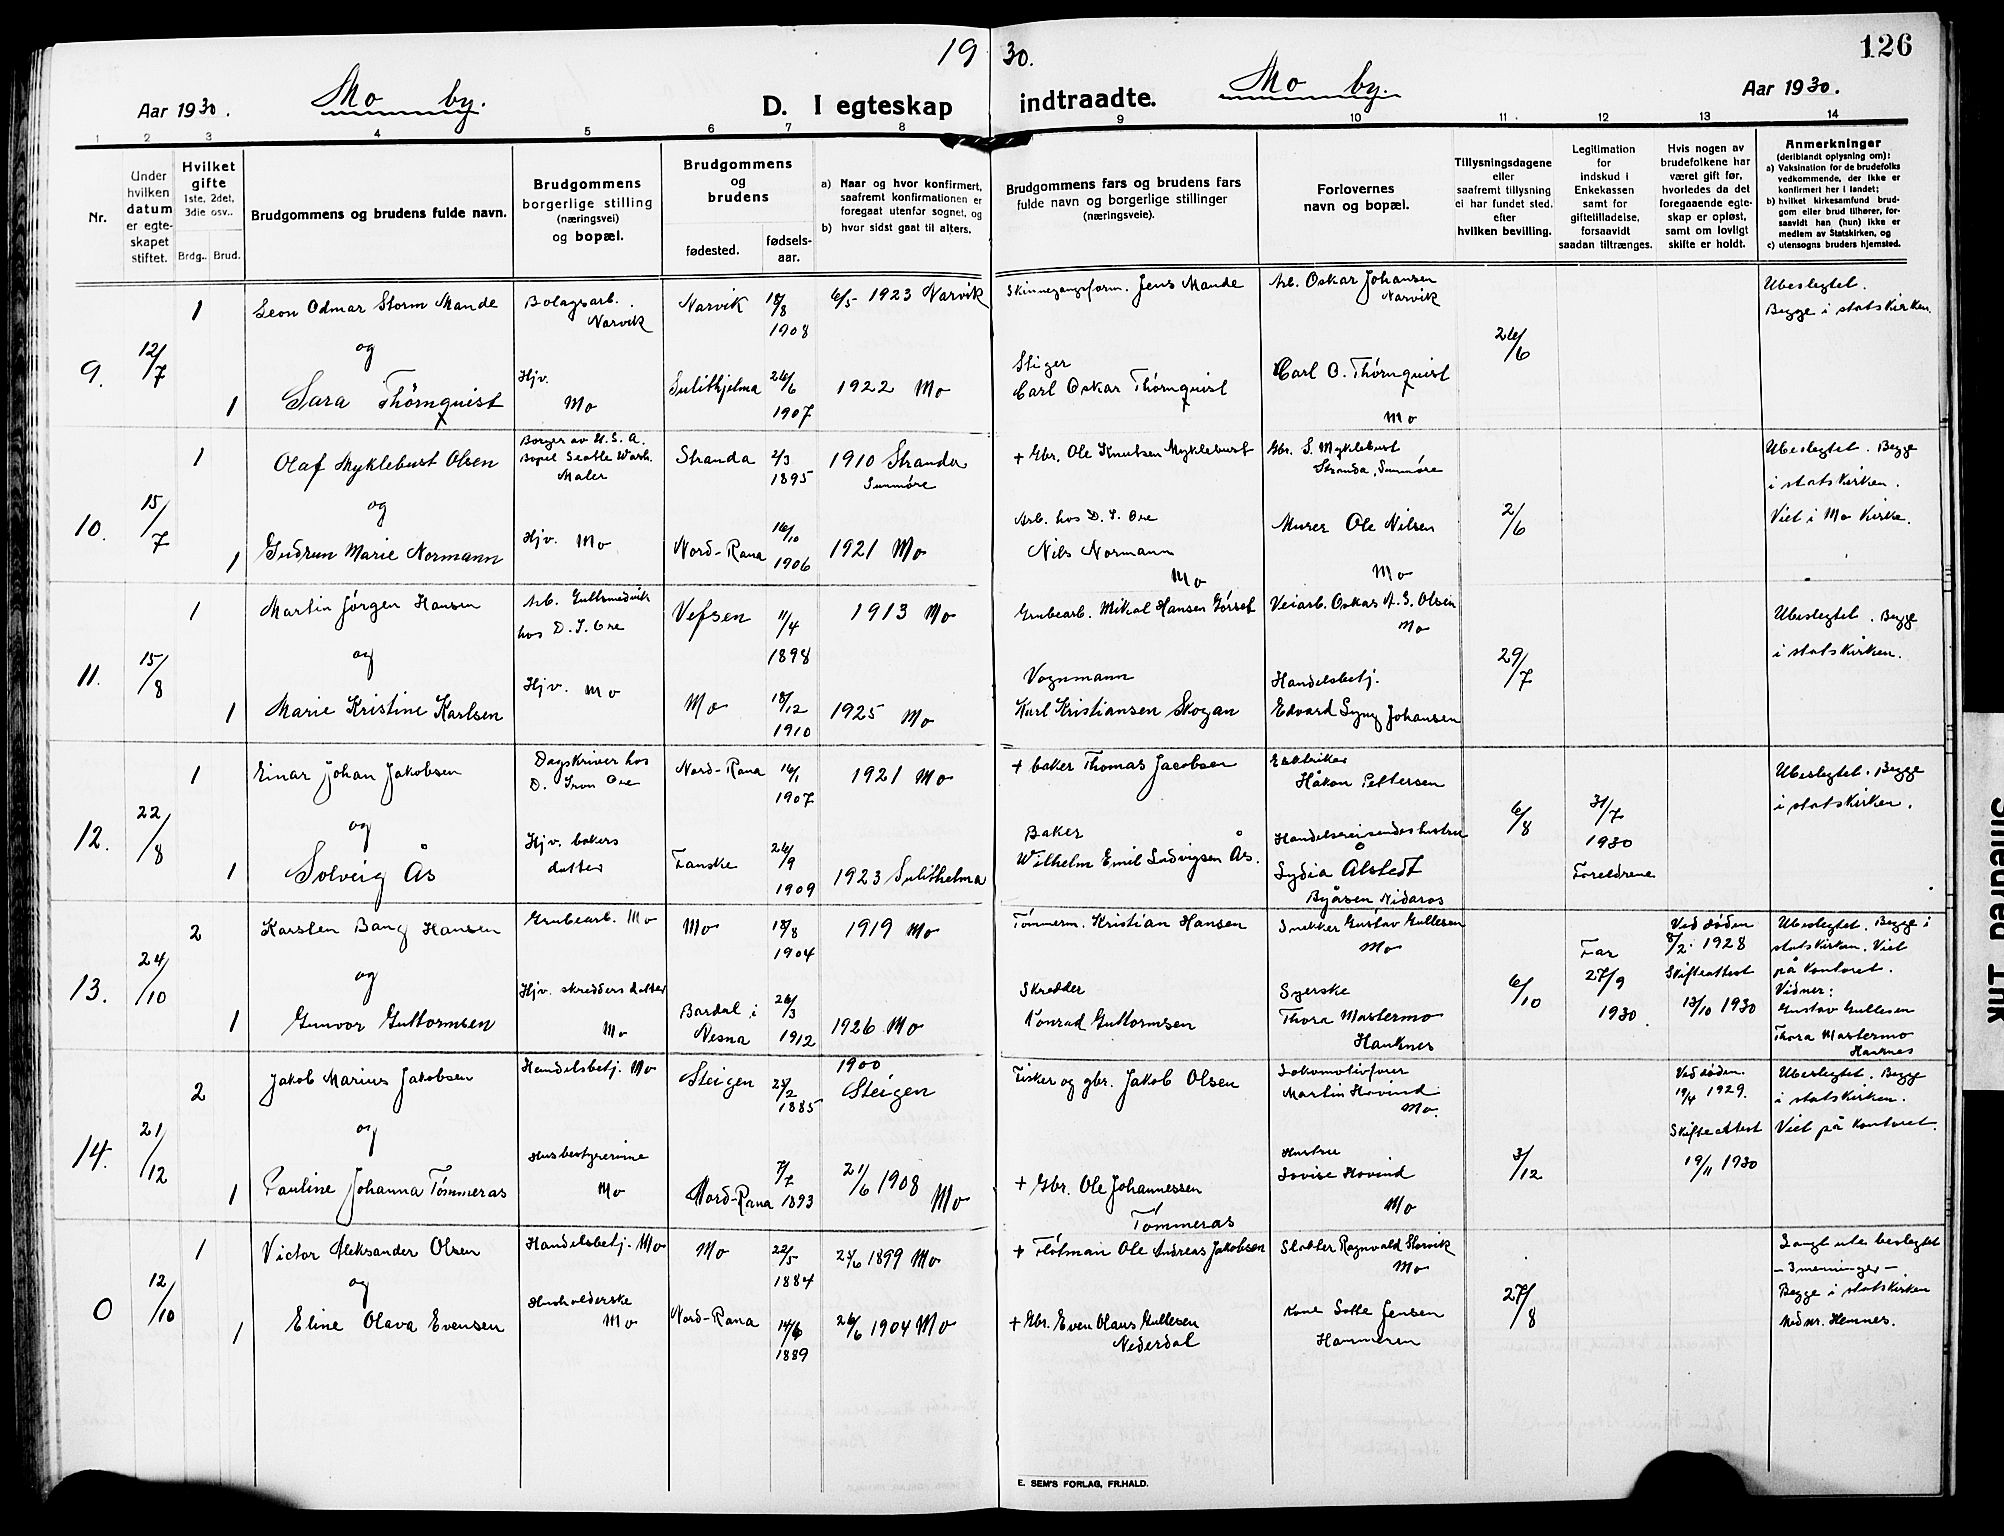 19 30.
126
Aar 1930. Mo by. D. I egteskap indtraadte. Mo by. Aar 1930.
1 2 3 4 5 6 7 8 9 10 11 12 13 14
Nr.
Under
hvilken
datum
er egte-
skapet
stiftet.
Hvilket
gifte
1ste, 2det,
3die osv..
Brdg.. Brud.
Brudgommens og brudens fulde navn.
Brudgommens
borgerlige stilling
(næringsvei)
og bopæl.
Brudgommens
og
brudens
fødested.
fødsels-
aar.
a) Naar og hvor konfirmert,
saafremt konfirmationen er
foregaat utenfor sognet, og
b) hvor sidst gaat til alters.
Brudgommens fars og brudens fars
fulde navn og borgerlige stillinger
(næringsveie).
Forlovernes
navn og bopæl.
Tillysningsdagene
eller
saafremt tillysning
ei har fundet sted.
efter
hvilken bevilling.
Legitimation
for
indskud i
Enkekassen
samt for
giftetilladelse,
forsaavidt
saadan tiltrænges.
Hvis nogen av
brudefolkene har
været gift før,
hvorledes da det
foregaaende egte-
skap er opløst,
samt om lovligt
skifte er holdt.
Anmerkninger
(deriblandt oplysning om):
a) Vaksination for de brudefolks
vedkommende, der ikke er
konfirmert her i landet;
b) hvilket kirkesamfund brud-
gom eller brud tilhører, for-
saavidt han (hun) ikke er
medlem av Statskirken, og
c) utensogns bruders hjemsted.
9.
12/7
1
Leon Odmar Storm Mande
og
1
Sara Thørnquist
Bolagsarb.
Narvik
Hjv.
Mo
Narvik
18/8
1908
Sulithjelma
26/6
1907
6/5 1923 Narvik
1922 Mo
Skinnegangsform. Jens Mande
Stiger
Carl Oskar Thørnquist
Arb. Oskar Johansen
Narvik
Carl O. Thørnquist
Mo
26/6
Ubeslegtet.
Begge i statskirken.
10.
15/7
1
Olaf Myklebust Olsen
og
1
Gudrun Marie Normann
Borger av U.S.A.
Bopel Seatle Wash.
Maler
Hjv. Mo
Stranda
2/3
1895
Nord-Rana
16/10
1906
1910 Stranda
Sunmøre
1921 Mo
+ Gbr. Ole Knutsen Myklebust
Arb. hos D. I. Ore
Nils Normann
Mo
Gbr. S. Myklebust
Stranda, Sunmøre
Murer Ole Nilsen
Mo
2/6
Ubeslegtet. Begge
i statskirken.
Viet i Mo Kirke.
11.
15/8
1
Martin Jørgen Hansen
og
1
Marie Kristine Karlsen
Arb. Gullsmedvik
hos D. I. Ore
Hjv. Mo
Vefsen
11/4
1898
Mo
18/12
1910
1913 Mo
1925 Mo
Grubearb. Mikal Hansen Gørset
Vognmann
Karl Kristiansen Skogan
Veiarb. Oskar A. S. Olsen
Mo
Handelsbetj.
Edvard Lyng Johansen
29/7
Ubeslegtet. Begge
i statskirken.
12.
22/8
1
Einar Johan Jakobsen
og
1
Solveig Ås
Dagskriver hos
D. Iron Ore
Hjv. bakers
datter
Nord-Rana
16/1
1907
Fauske
26/9
1909
1921 Mo
1923 Sulithelma
+ baker Thomas Jacobsen
Baker
Wilhelm Emil Ludvigsen Ås.
Elektriker
Håkon Pettersen
Handelsreisendes hustru
Lydia Ålstedt
Byåsen, Nidaros
6/8
31/7
1930
Foreldrene
Ubeslegtet. Begge
i statskirken.
13.
24/10
2
Karsten Bang Hansen
og
1
Gunvor Guttormsen
Grubearb. Mo
Hjv. skredders datter
Mo
Mo
18/8
1904
Bardal i
Nesna
26/3
1912
1919 Mo
1926 Mo
Tømmerm. Kristian Hansen
Skredder
Konrad Guttormsen
Snekker Gustav Gullesen
Mo
Syerske
Thora Mastermo
Hauknes
6/10
Far
27/9
1930.
Ved døden
8/2. 1928
Skifteattest
13/10 1930
Ubeslegtet. Begge i
statskirken. Viet
på kontoret.
Vidner:
Gustav Gullesen
Thora Mastermo
Hauknes
14.
21/12
2
Jakob Marius Jakobsen
og
1
Pauline Johanna Tømmerås
Handelsbetj. Mo
Husbestyrerinne
Mo
Steigen
25/2
1885
Nord-Rana
7/7
1893
1900
Steigen
21/6 1908 Mo
Fisker og gbr. Jakob Olsen
+ Gbr. Ole Johannessen
Tømmerås
Lokomotivfører
Martin Hovind
Mo.
Hustru
Lovise Hovind
Mo
3/12
Ved døden.
19/4 1929.
Skifteattest
19/11 1930
Ubeslegtet. Begge
i statskirken.
Viet på kontoret.
0
12/10
1
Victor Aleksander Olsen
og
1
Eline Olava Evensen
Handelsbetj. Mo
Husholderske
Mo
Mo
22/5
1884
Nord-Rana
14/6
1889
1899 Mo
26/6 1904 Mo
+ Fløtman Ole Andreas Jakobsen
+ Gbr. Even Olaus Gullesen
Nederdal
Slakter Ragnvald Storvik
Mo
Kone Lotte Jensen
Hammeren
27/8
Langt ute beslegtet
- 3menninger -
Begge i statskirken
Hemnes.
E. SEM'S FORLAG, FR.HALD.